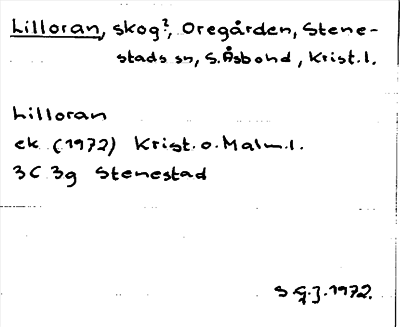 Lilloran, skog?, Oregården, Stene-
stads sn, S. Åsbohd, Krist. l.
Lilloran
ek (1972) Krist. o. Malm. l.
3C 3g Stenestad
1972.